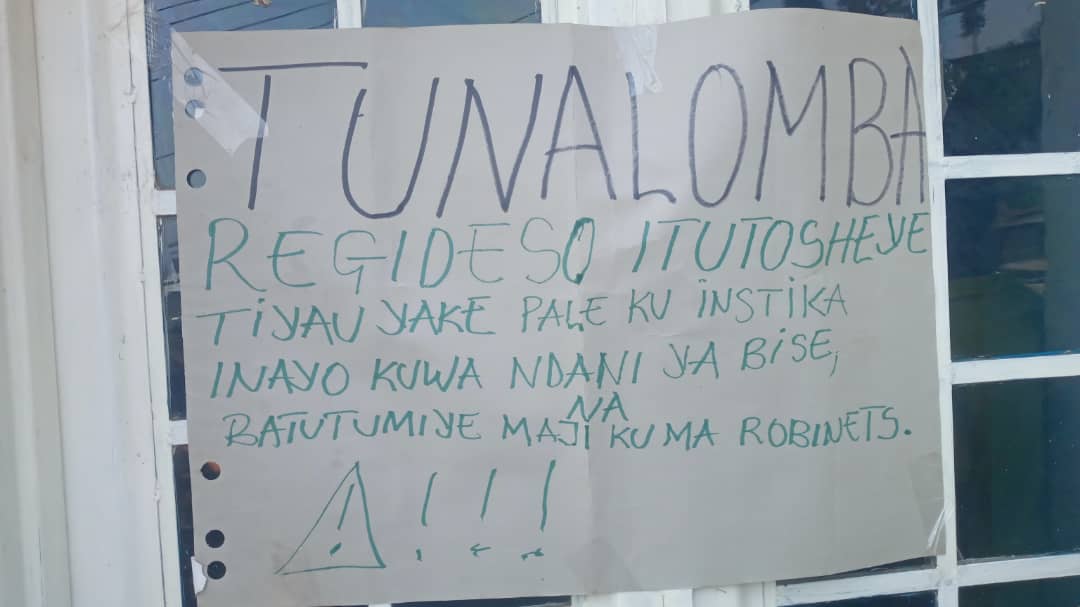 TUNALOMBA
REGIDESO ITUTOSHEYE
TIYAU YAKE PALE KU INSTIKA
INAYO KUWA NDANI YA BISE,
NA
BATUTUMIYE MAJI KU MA ROBINETS.
! ! ! !